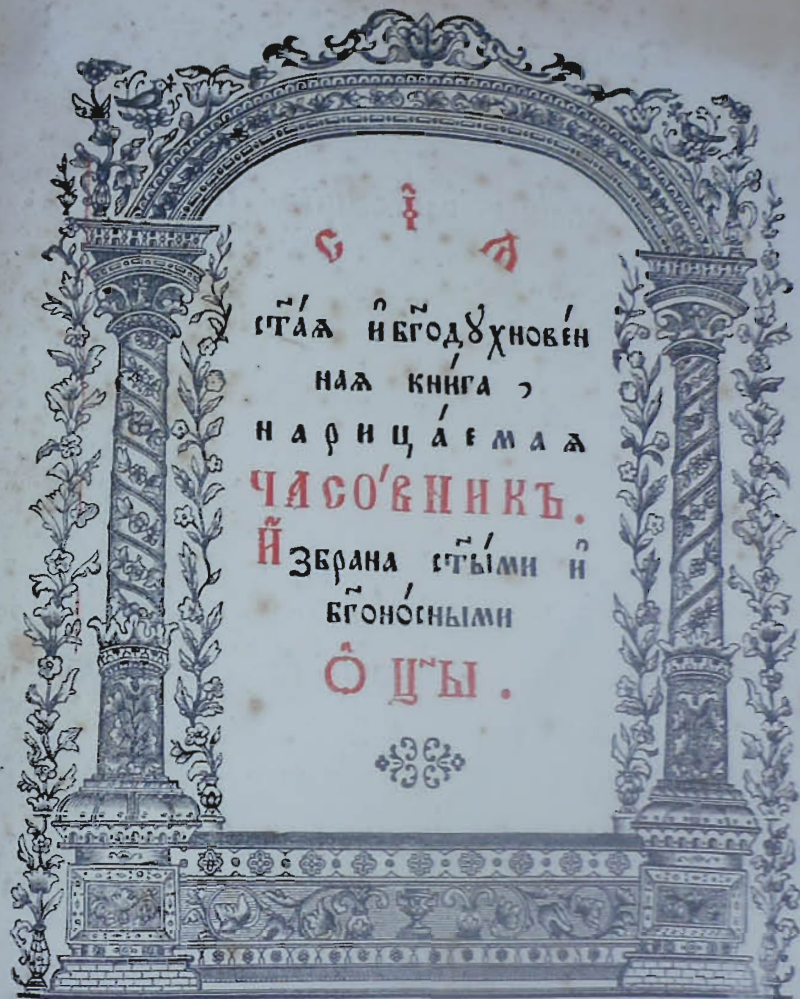 сі̑ѧ
ст҃а́ѧ и҆ бг҃одꙋхнове́н
наѧ кни́га ,
нарица́емаѧ
ЧАСО́ВНИКЪ.
И҆збрана ст҃ы́ми и҆
бг҃оно́сными
Ѻ҆ц҃ы .